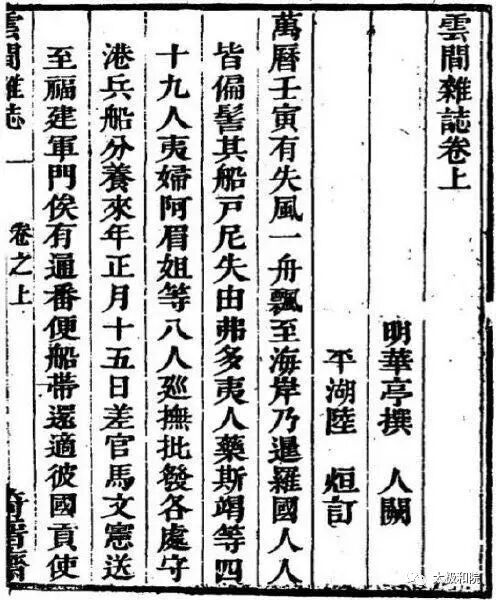 雲間雜誌卷上
明華亭撰 人闕
平湖陸 烜訂
萬曆壬寅有失風一舟飄至海岸乃暹羅國人人
皆偏髻其船戸尼失由弗多夷人藥斯竭等四
十九人夷婦阿眉姐等八人廵撫批發各處守
港兵船分養來年正月十五日差官馬文憲送
至福建軍門俟有通番便船帶還適彼國貢使
雲間雜誌 一 卷之上 奇晉齋
太极和院